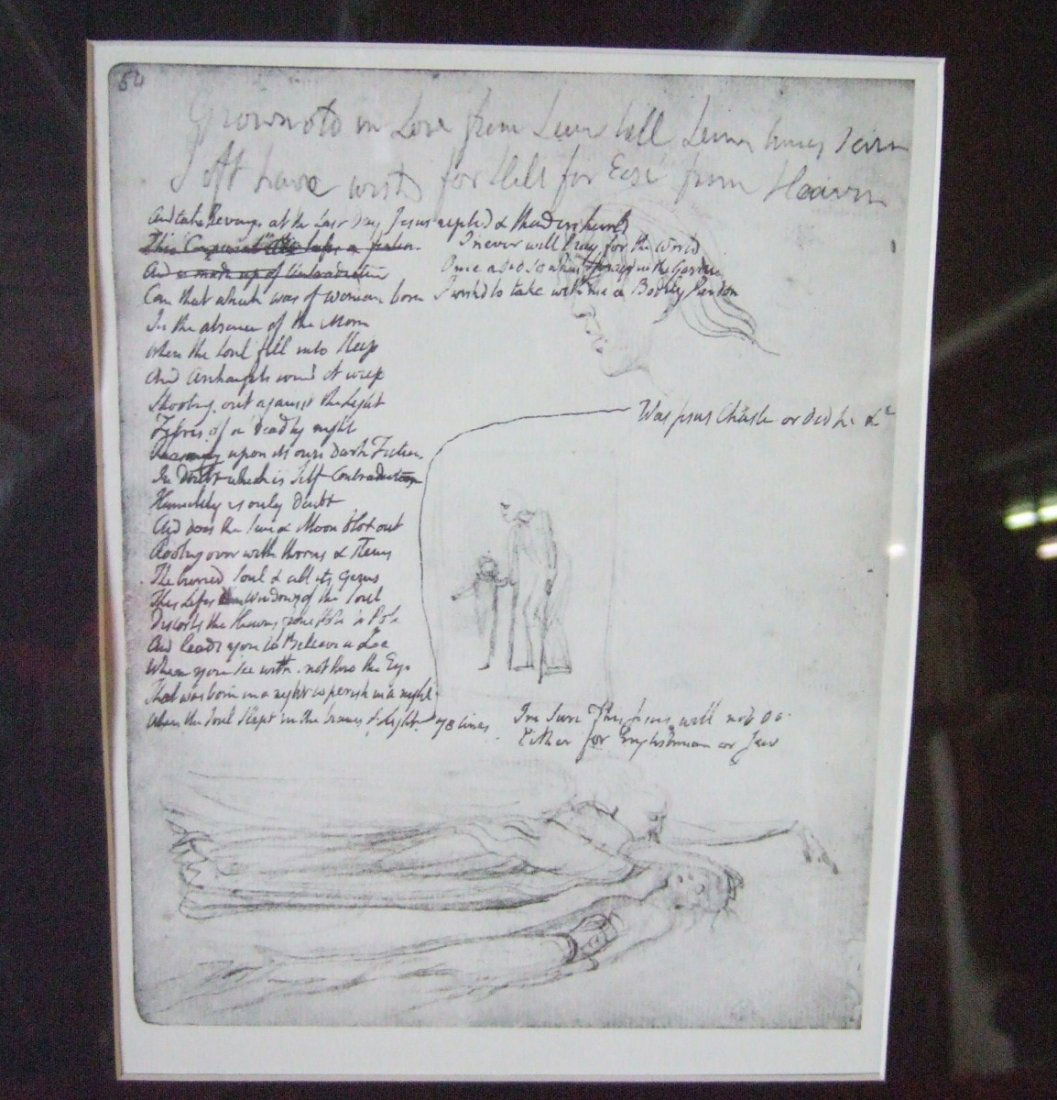 54
Grown old in Love from Seven till Seven times Seven
I oft have wishd for Hell for Ease from Heaven
And take Revenge at the Last Day Jesus replied & thunders hurld
This Corporeal life's a fiction I never will Pray for the World
And is made up of Contradiction Once I did so when I prayd in the Garden
Can that which was of woman born I wishd to take with me a Bodily Pardon
In the absence of the Morn
When the Soul fell into Sleep
And Archangels round it weep
Shooting out against the Light
Fibres of a deadly night
Reasoning upon its own Dark Fiction
In Doubt which is Self Contradiction
Humility is only Doubt
And does the Sun & Moon blot out
Rooting over with thorns & Stems
The buried Soul & all its Gems
This Lifes dim Windows of the Soul
Distorts the Heavens from Pole to Pole
And leads you to Believe a Lie
When you see with not thro the Eye
That was born in a night to perish in a night
When the Soul slept in the beams of Light. 78 lines
Was Jesus Chaste or did he &c
Im Sure This Jesus will not Do
Either for Englishman or Jew